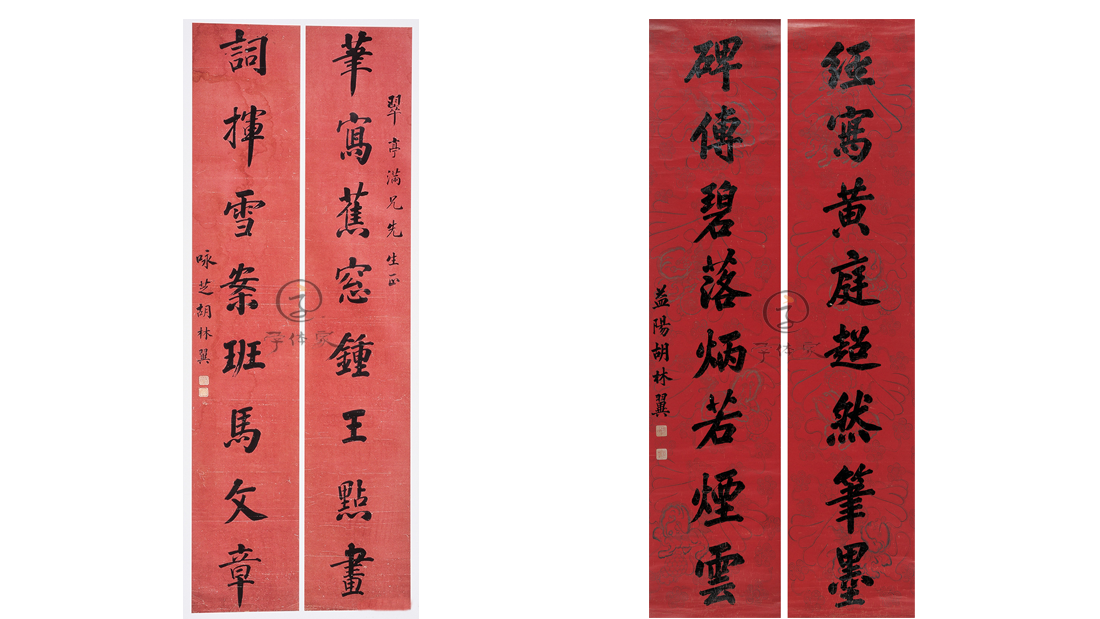 筆寫蕉窓鍾王點畫
翠亭滿兄先生正
詞揮雪案班馬文章
咏芝胡林翼
經寫黃庭超然筆墨
碑傳碧落炳若煙雲
益陽胡林翼
字体家
字体家